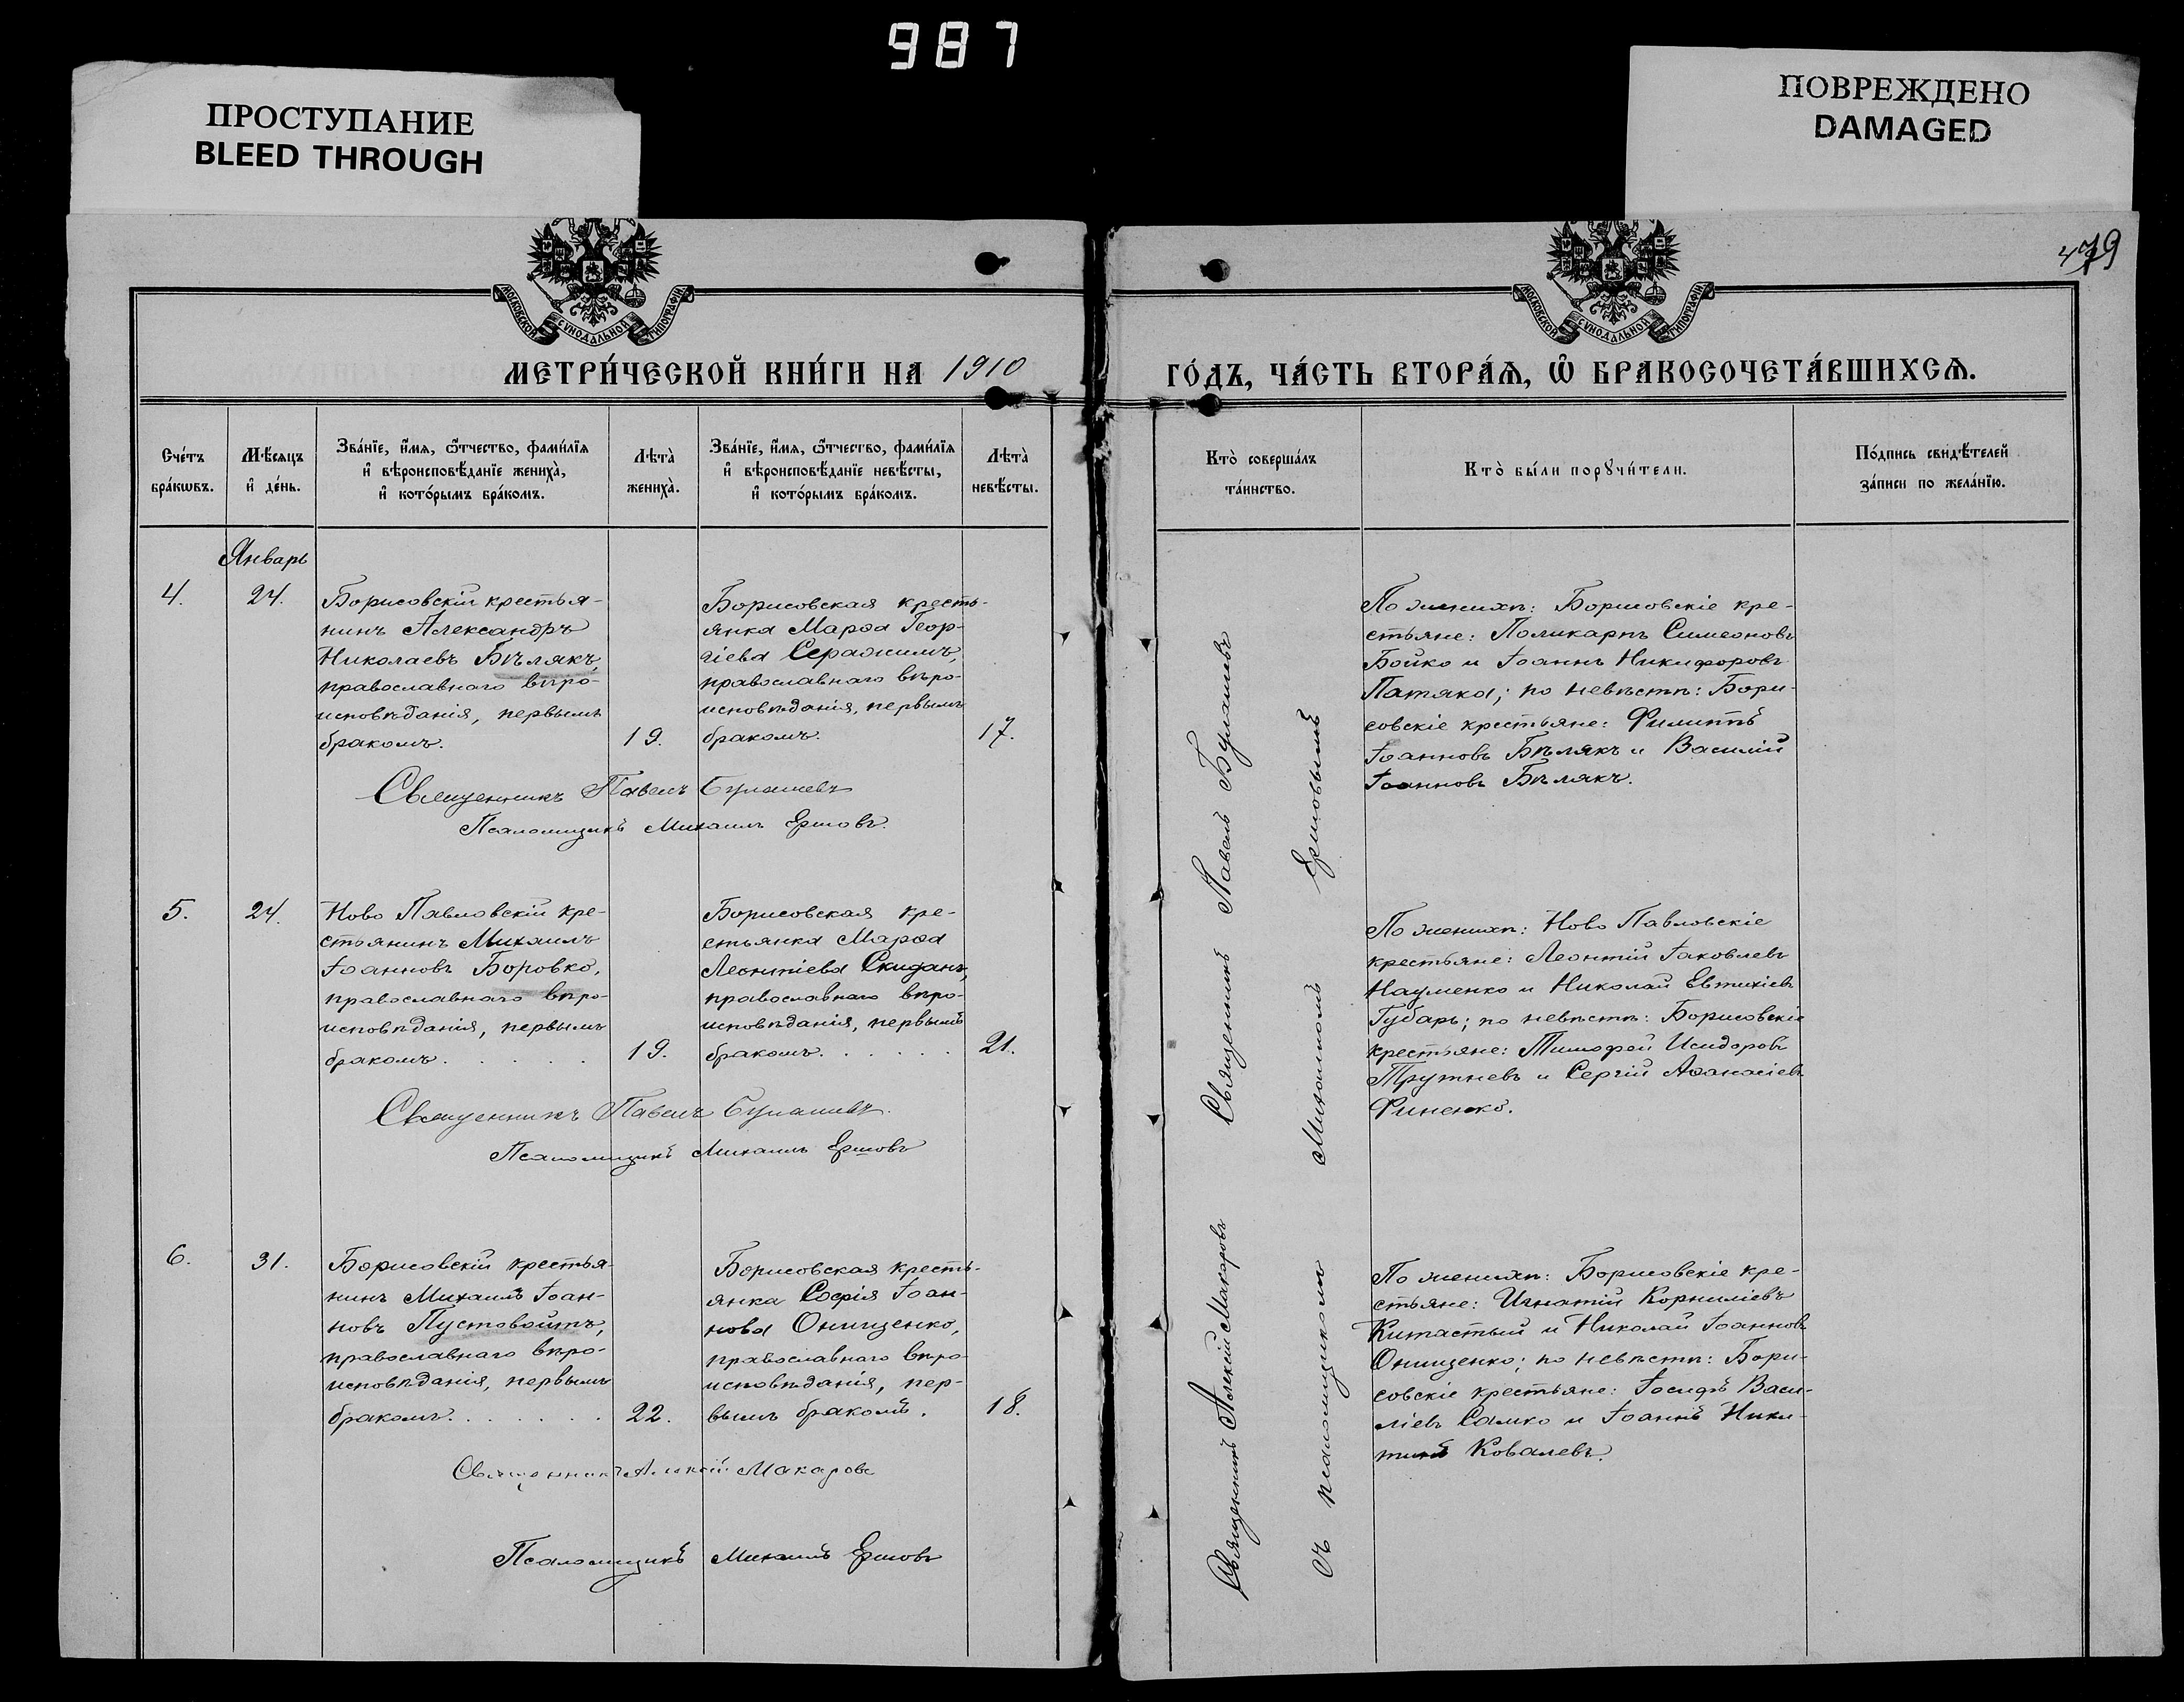 987
ПРОСТУПАНИЕ
BLEED THROUGH
ПОВРЕЖДЕНО
DAMAGED
479
МОСКОВСКОЙ СѴНОДАЛЬНОЙ ТИПОГРАФІИ
МОСКОВСКОЙ СѴНОДАЛЬНОЙ ТИПОГРАФІИ
МЕТРИ́ЧЕСКОЙ КНИ́ГИ НА 1910
ГО́ДЪ, ЧА́СТЬ ВТОРА́Ѧ, Ѽ БРАКОСОЧЕТА́ВШИХСѦ.
Сче́тъ
бра́кѡвъ.
Мѣ́сяцъ
и҆ де́нь.
Зва́нїе, и҆́мя, ѻ҆́тчество, фами́лїя
и҆ вѣроисповѣ́данїе жениха̀,
и҆ кото́рымъ бра́комъ.
Лѣта̀
жениха̀.
Зва́нїе, и҆́мя, ѻ҆́тчество, фами́лїя
и҆ вѣроисповѣ́данїе невѣ́сты,
и҆ кото́рымъ бра́комъ.
Лѣта̀
невѣ́сты.
Кто̀ соверша́лъ
та́инство.
Кто̀ бы́ли порꙋчи́тели.
По́дпись свидѣ́телей
за́писи по жела́нїю.
Январь
4.
24.
Борисовскій крестья-
нинъ Александръ
Николаевъ Бѣлякъ,
православнаго вѣро-
исповѣданія, первымъ
бракомъ.
19.
Борисовская кресть-
янка Марѳа Геор-
гіева Серажимъ,
православнаго вѣро-
исповѣданія, первымъ
бракомъ.
17.
Священникъ Павелъ Булашевъ
Псаломщикъ Михаилъ Ершовъ.
По женихѣ: Борисовскіе кре-
стьяне: Поликарпъ Симеоновъ
Бойко и Іоаннъ Никифоровъ
Патяка; по невѣстѣ: Бори-
совскіе крестьяне: Филиппъ
Іоанновъ Бѣлякъ и Василій
Іоанновъ Бѣлякъ.
5.
24.
Ново Павловскій кре-
стьянинъ Михаилъ
Іоанновъ Боровко,
православнаго вѣро-
исповѣданія, первымъ
бракомъ. . . . . .
19.
Борисовская кре-
стьянка Марѳа
Леонтіева Скиданъ,
православнаго вѣро-
исповѣданія, первымъ
бракомъ. . . . . .
21.
Священникъ Павелъ Булашевъ.
Псаломщикъ Михаилъ Ершовъ
По женихѣ: Ново Павловскіе
крестьяне: Леонтій Іаковлевъ
Науменко и Николай Евтихіевъ
Губарь; по невѣстѣ: Борисовскіе
крестьяне: Тимофей Исидоровъ
Трутневъ и Сергій Аѳанасіевъ
Финенко.
6.
31.
Борисовскій крестья-
нинъ Михаилъ Іоан-
новъ Пустовойтъ,
православнаго вѣро-
исповѣданія, первымъ
бракомъ. . . . . . .
22.
Борисовская кресть-
янка Софія Іоан-
нова Онищенко,
православнаго вѣро-
исповѣданія, пер-
вымъ бракомъ.
18.
Священникъ Алексій Макаровъ
Псаломщикъ Михаилъ Ершовъ
По женихѣ: Борисовскіе кре-
стьяне: Игнатій Корниліевъ
Китастый и Николай Іоанновъ
Онищенко; по невѣстѣ: Бори-
совскіе крестьяне: Іосифъ Васи-
ліевъ Самко и Іоаннъ Ники-
тинъ Ковалевъ.
Священникъ Алексій Макаровъ Священникъ Павелъ Булашевъ
съ псаломщикомъ Михаиломъ Ершовымъ